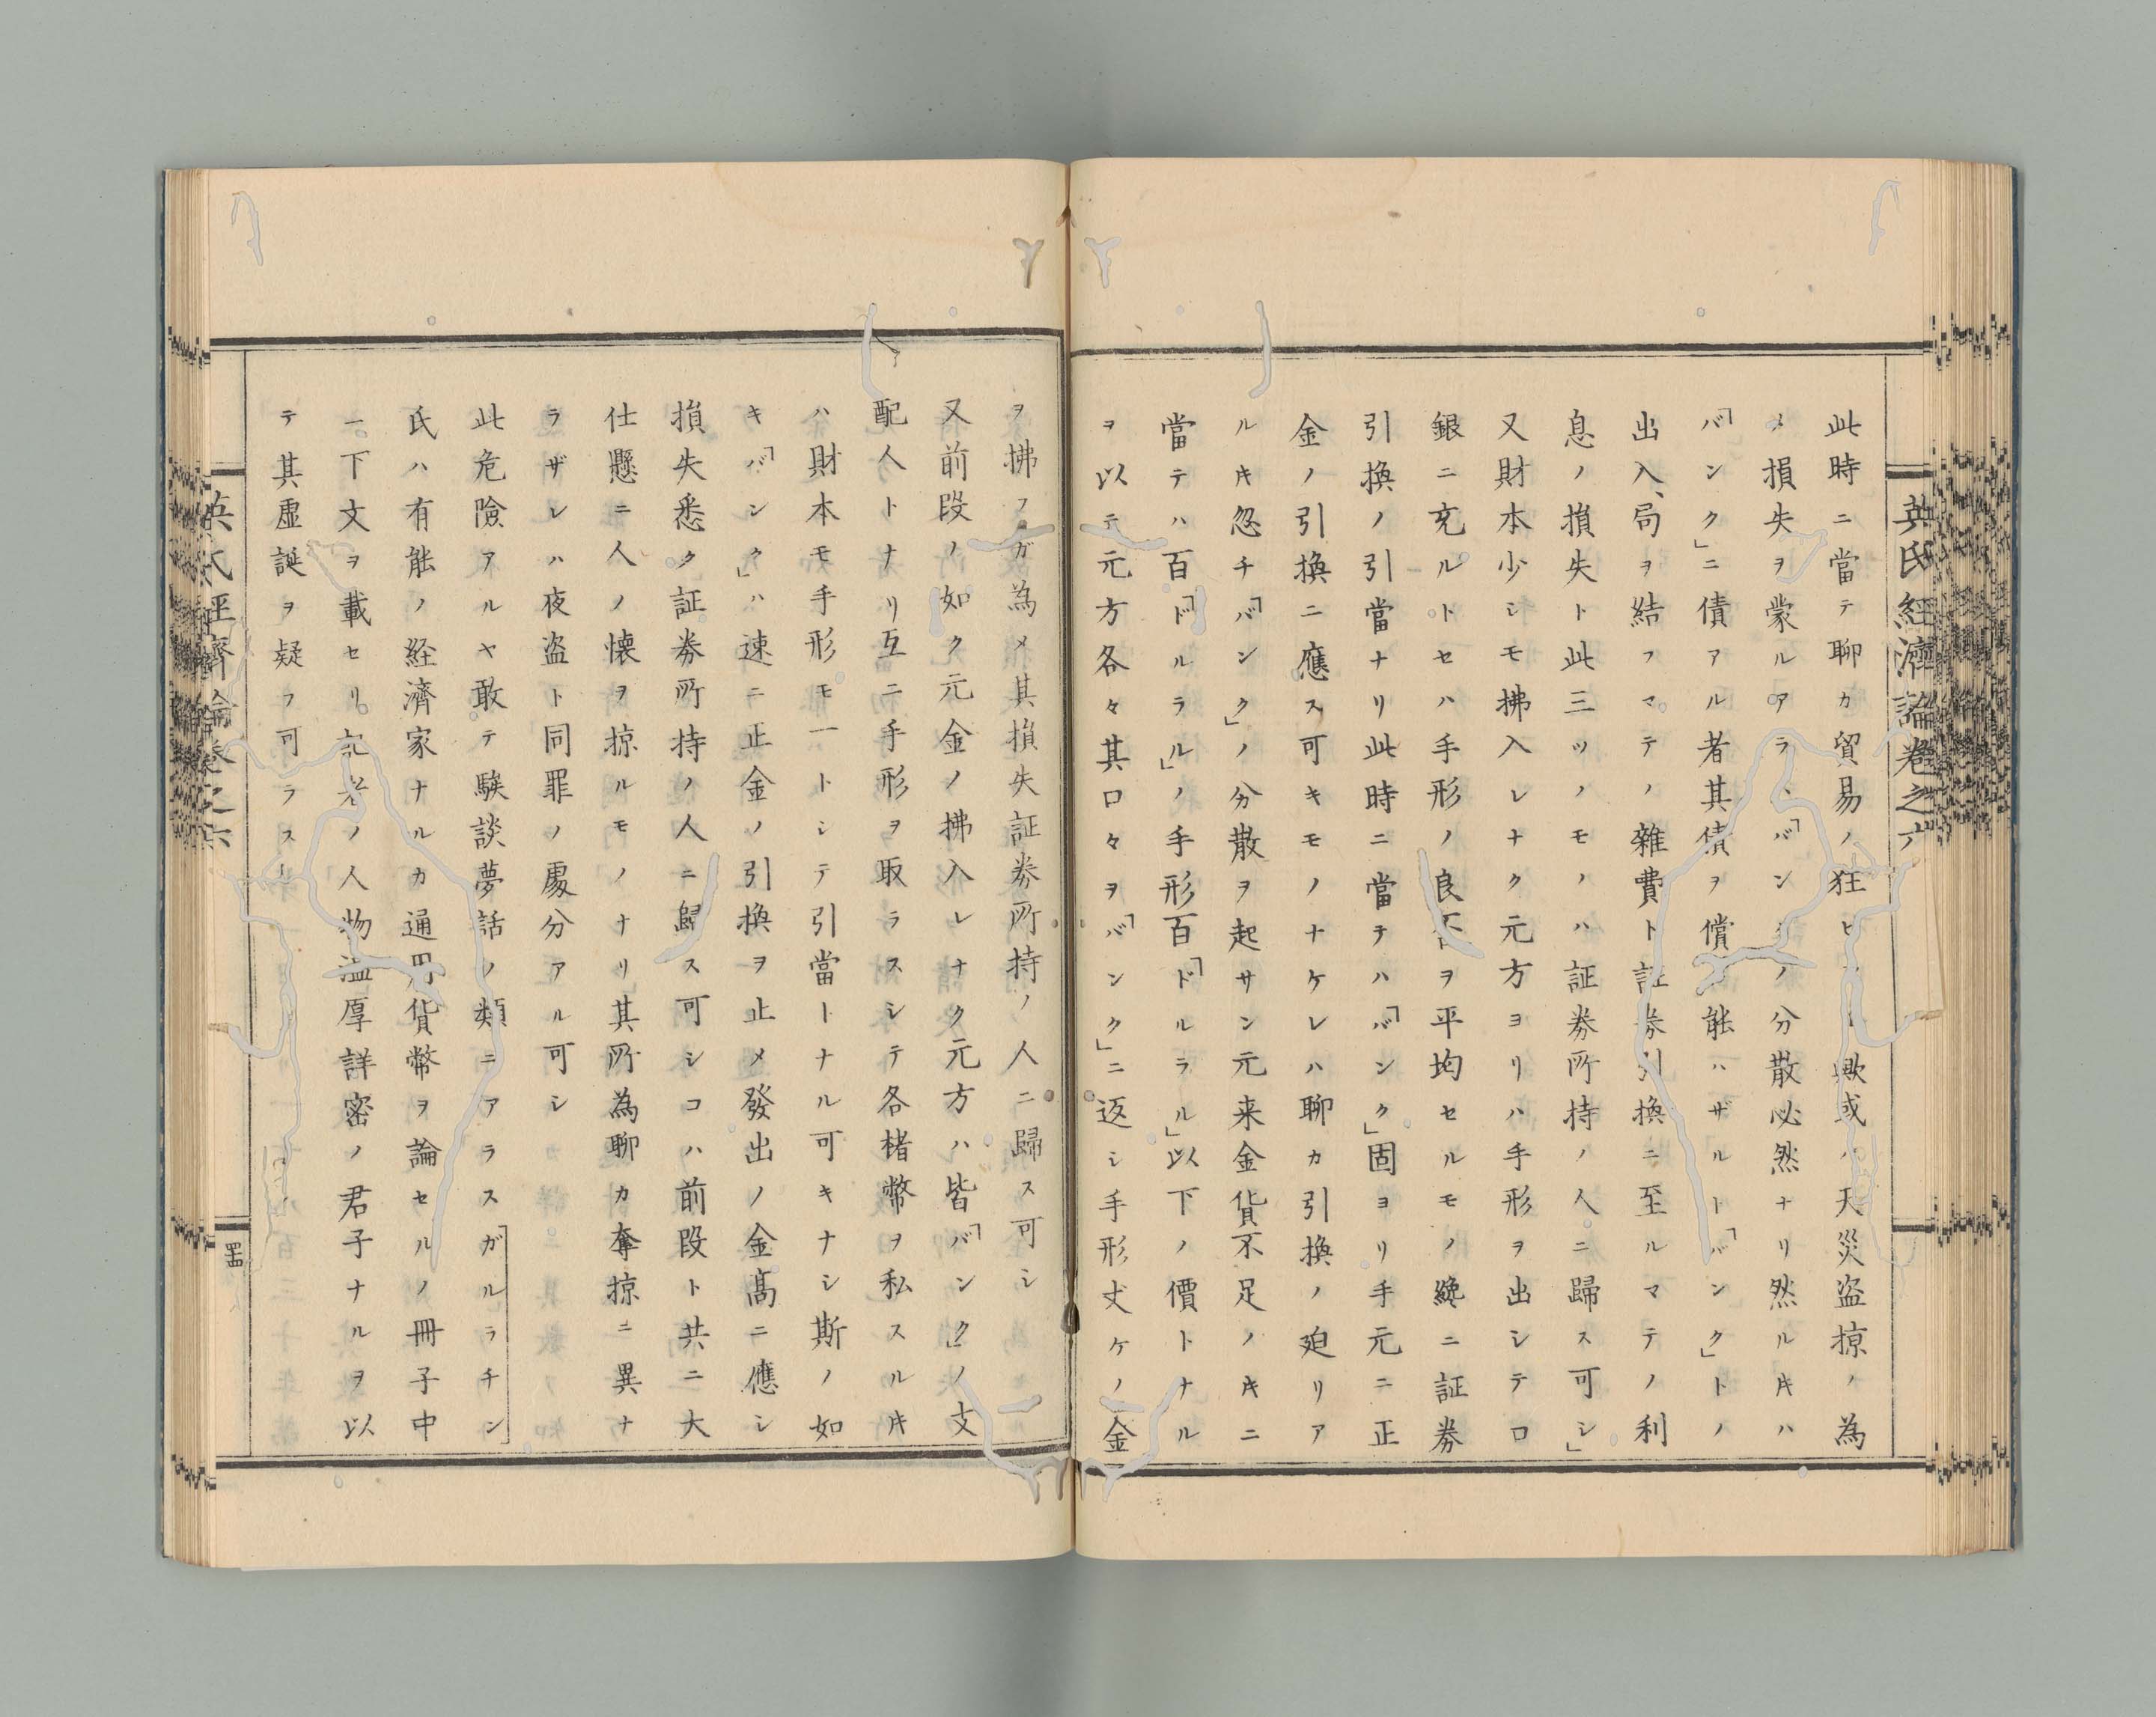 英氏経濟論巻之六
此時ニ當テ聊カ貿易ノ狂ヒ歟或ハ天災盗掠ノ為
メ損失ヲ蒙ルアラハ「バンク」ノ分散必然ナリ然ルキハ
「バンク」ニ債アル者其債ヲ償能ハザルト「バンク」トノ
出入局ヲ結フマテノ雑費ト証券引換ニ至ルマテノ利
息ノ損失ト此三ツノモノハ証券所持ノ人ニ歸ス可シ」
又財本少シモ拂入レナク元方ヨリハ手形ヲ出シテロ
銀ニ充ルトセハ手形ノ良否ヲ平均セルモノ纔ニ証券
引換ノ引當ナリ此時ニ當テハ「バンク」固ヨリ手元ニ正
金ノ引換ニ應ス可キモノナケレハ聊カ引換ノ廹リア
ルキ忽チ「バンク」ノ分散ヲ起サン元来金貨不足ノキニ
當テハ百「ドルラル」ノ手形百「ドルラル」以下ノ價トナル
ヲ以テ元方各々其口々ヲ「バンク」ニ返シ手形丈ケノ金
ヲ拂フガ為メ其損失証券所持ノ人ニ歸ス可シ
又前段ノ如ク元金ノ拂入レナク元方ハ皆「バンク」ノ支
配人トナリ互ニ手形ヲ取ラスシテ各楮幣ヲ私スルキ
ハ財本モ手形モ一トシテ引當トナル可キナシ斯ノ如
キ「バンク」ハ速ニ正金ノ引換ヲ止メ發出ノ金髙ニ應シ
損失悉ク証券所持ノ人ニ歸ス可シコハ前段ト共ニ大
仕懸ニ人ノ懐ヲ掠ルモノナリ其所為聊カ奪掠ニ異ナ
ラザレハ夜盗ト同罪ノ處分アル可シ
此危險アルヤ敢テ駿談夢話ノ類ニアラスガルラチン
氏ハ有能ノ経濟家ナルカ通用貨幣ヲ論セルノ冊子中
ニ下文ヲ載セリ記者ノ人物温厚詳密ノ君子ナルヲ以
テ其虚誕ヲ疑フ可ラス
英氏経濟論巻之六